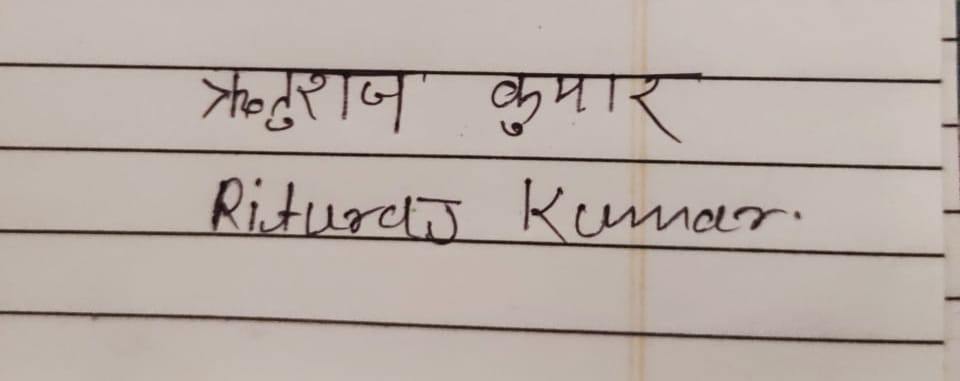 ऋतुराज कुमार
Rituraj Kumar.